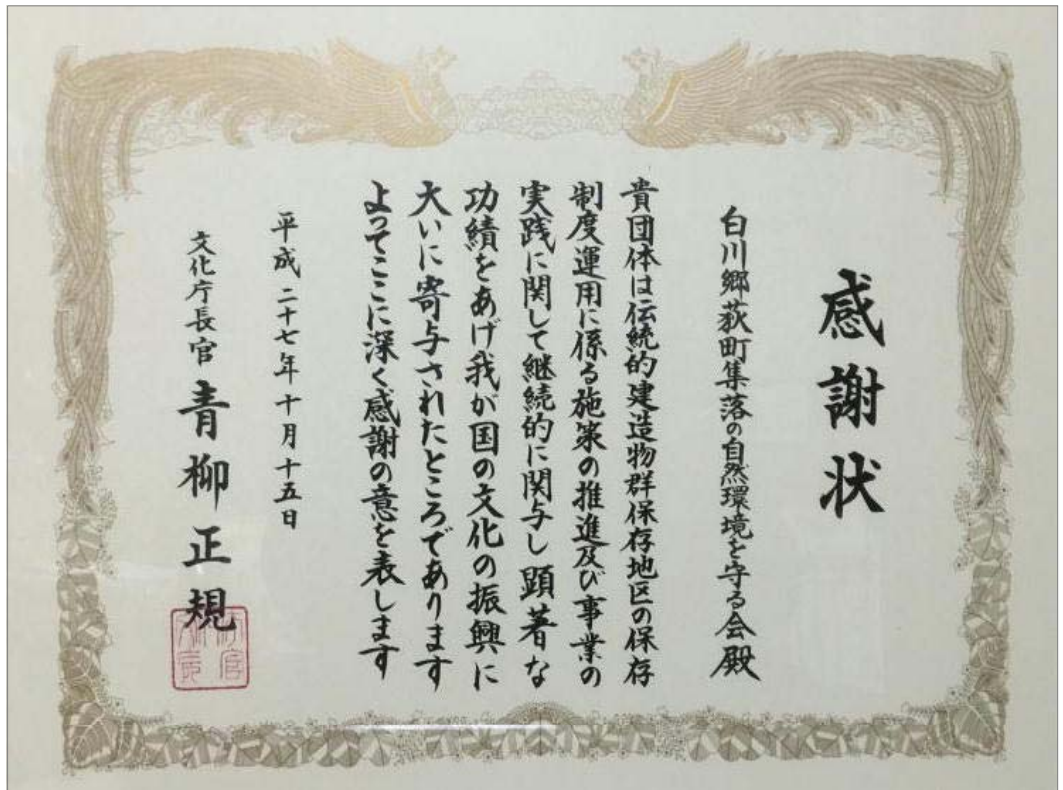 感謝状
白川郷荻町集落の自然環境を守る会殿
貴団体は伝統的建造物群保存地区の保存
制度運用に係る施策の推進及び事業の
実践に関して継続的に関与し顕著な
功績をあげ我が国の文化の振興に
大いに寄与されたところであります
よってここに深く感謝の意を表します
平成二十七年十月十五日
文化庁長官 青柳正規